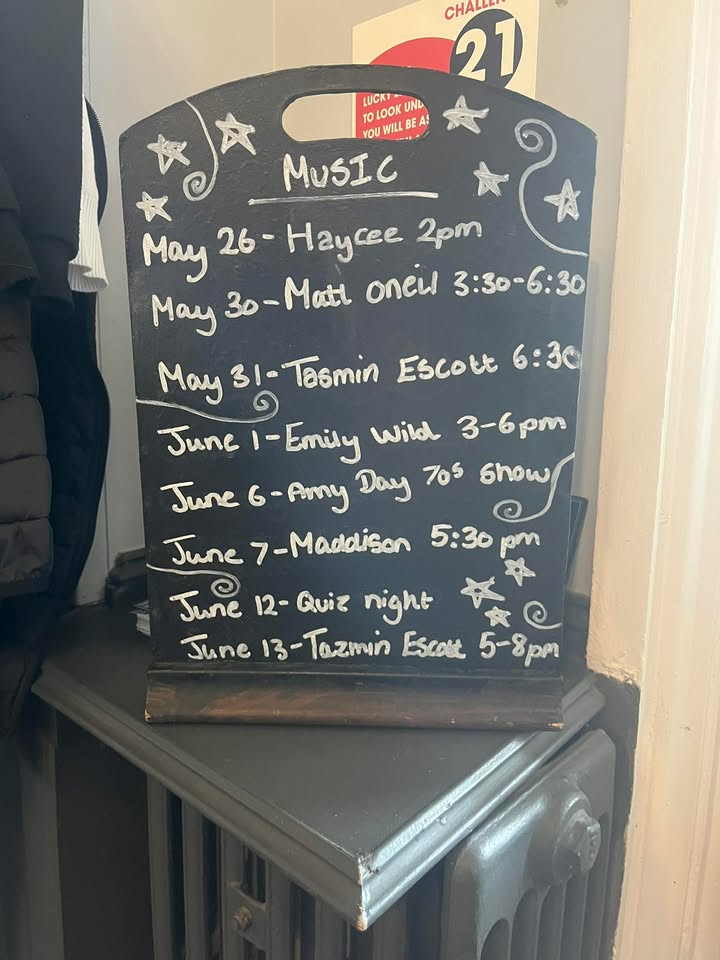 CHALLEN
21
LUCKY
TO LOOK UND
YOU WILL BE AS
MUSIC
May 26 - Haycee 2pm
May 30 - Matt oneil 3:30-6:30
May 31 - Tasmin Escott 6:30
June 1 - Emily Wild 3-6pm
June 6 - Amy Day 70s Show
June 7 - Maddison 5:30 pm
June 12 - Quiz night
June 13 - Tazmin Escott 5-8pm